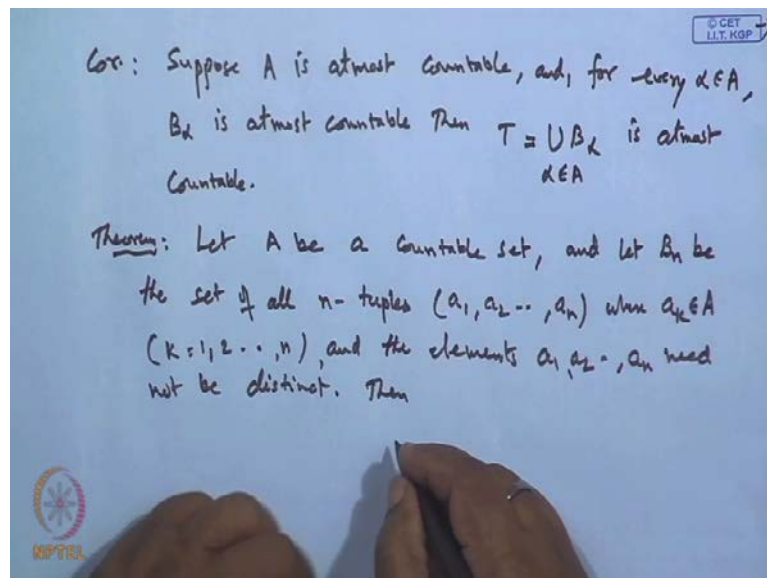 © CET
I.I.T. KGP
Cor.: Suppose A is atmost countable, and, for every α∈A,
Bα is atmost countable Then T = ∪ Bα is atmost
α∈A
Countable.
Theorem: Let A be a countable set, and let Bn be
the set of all n-tuples (a1, a2 .., an) where ak∈A
(K=1,2 .., n), and the elements a1, a2 .., an need
not be distinct. Then
NPTEL